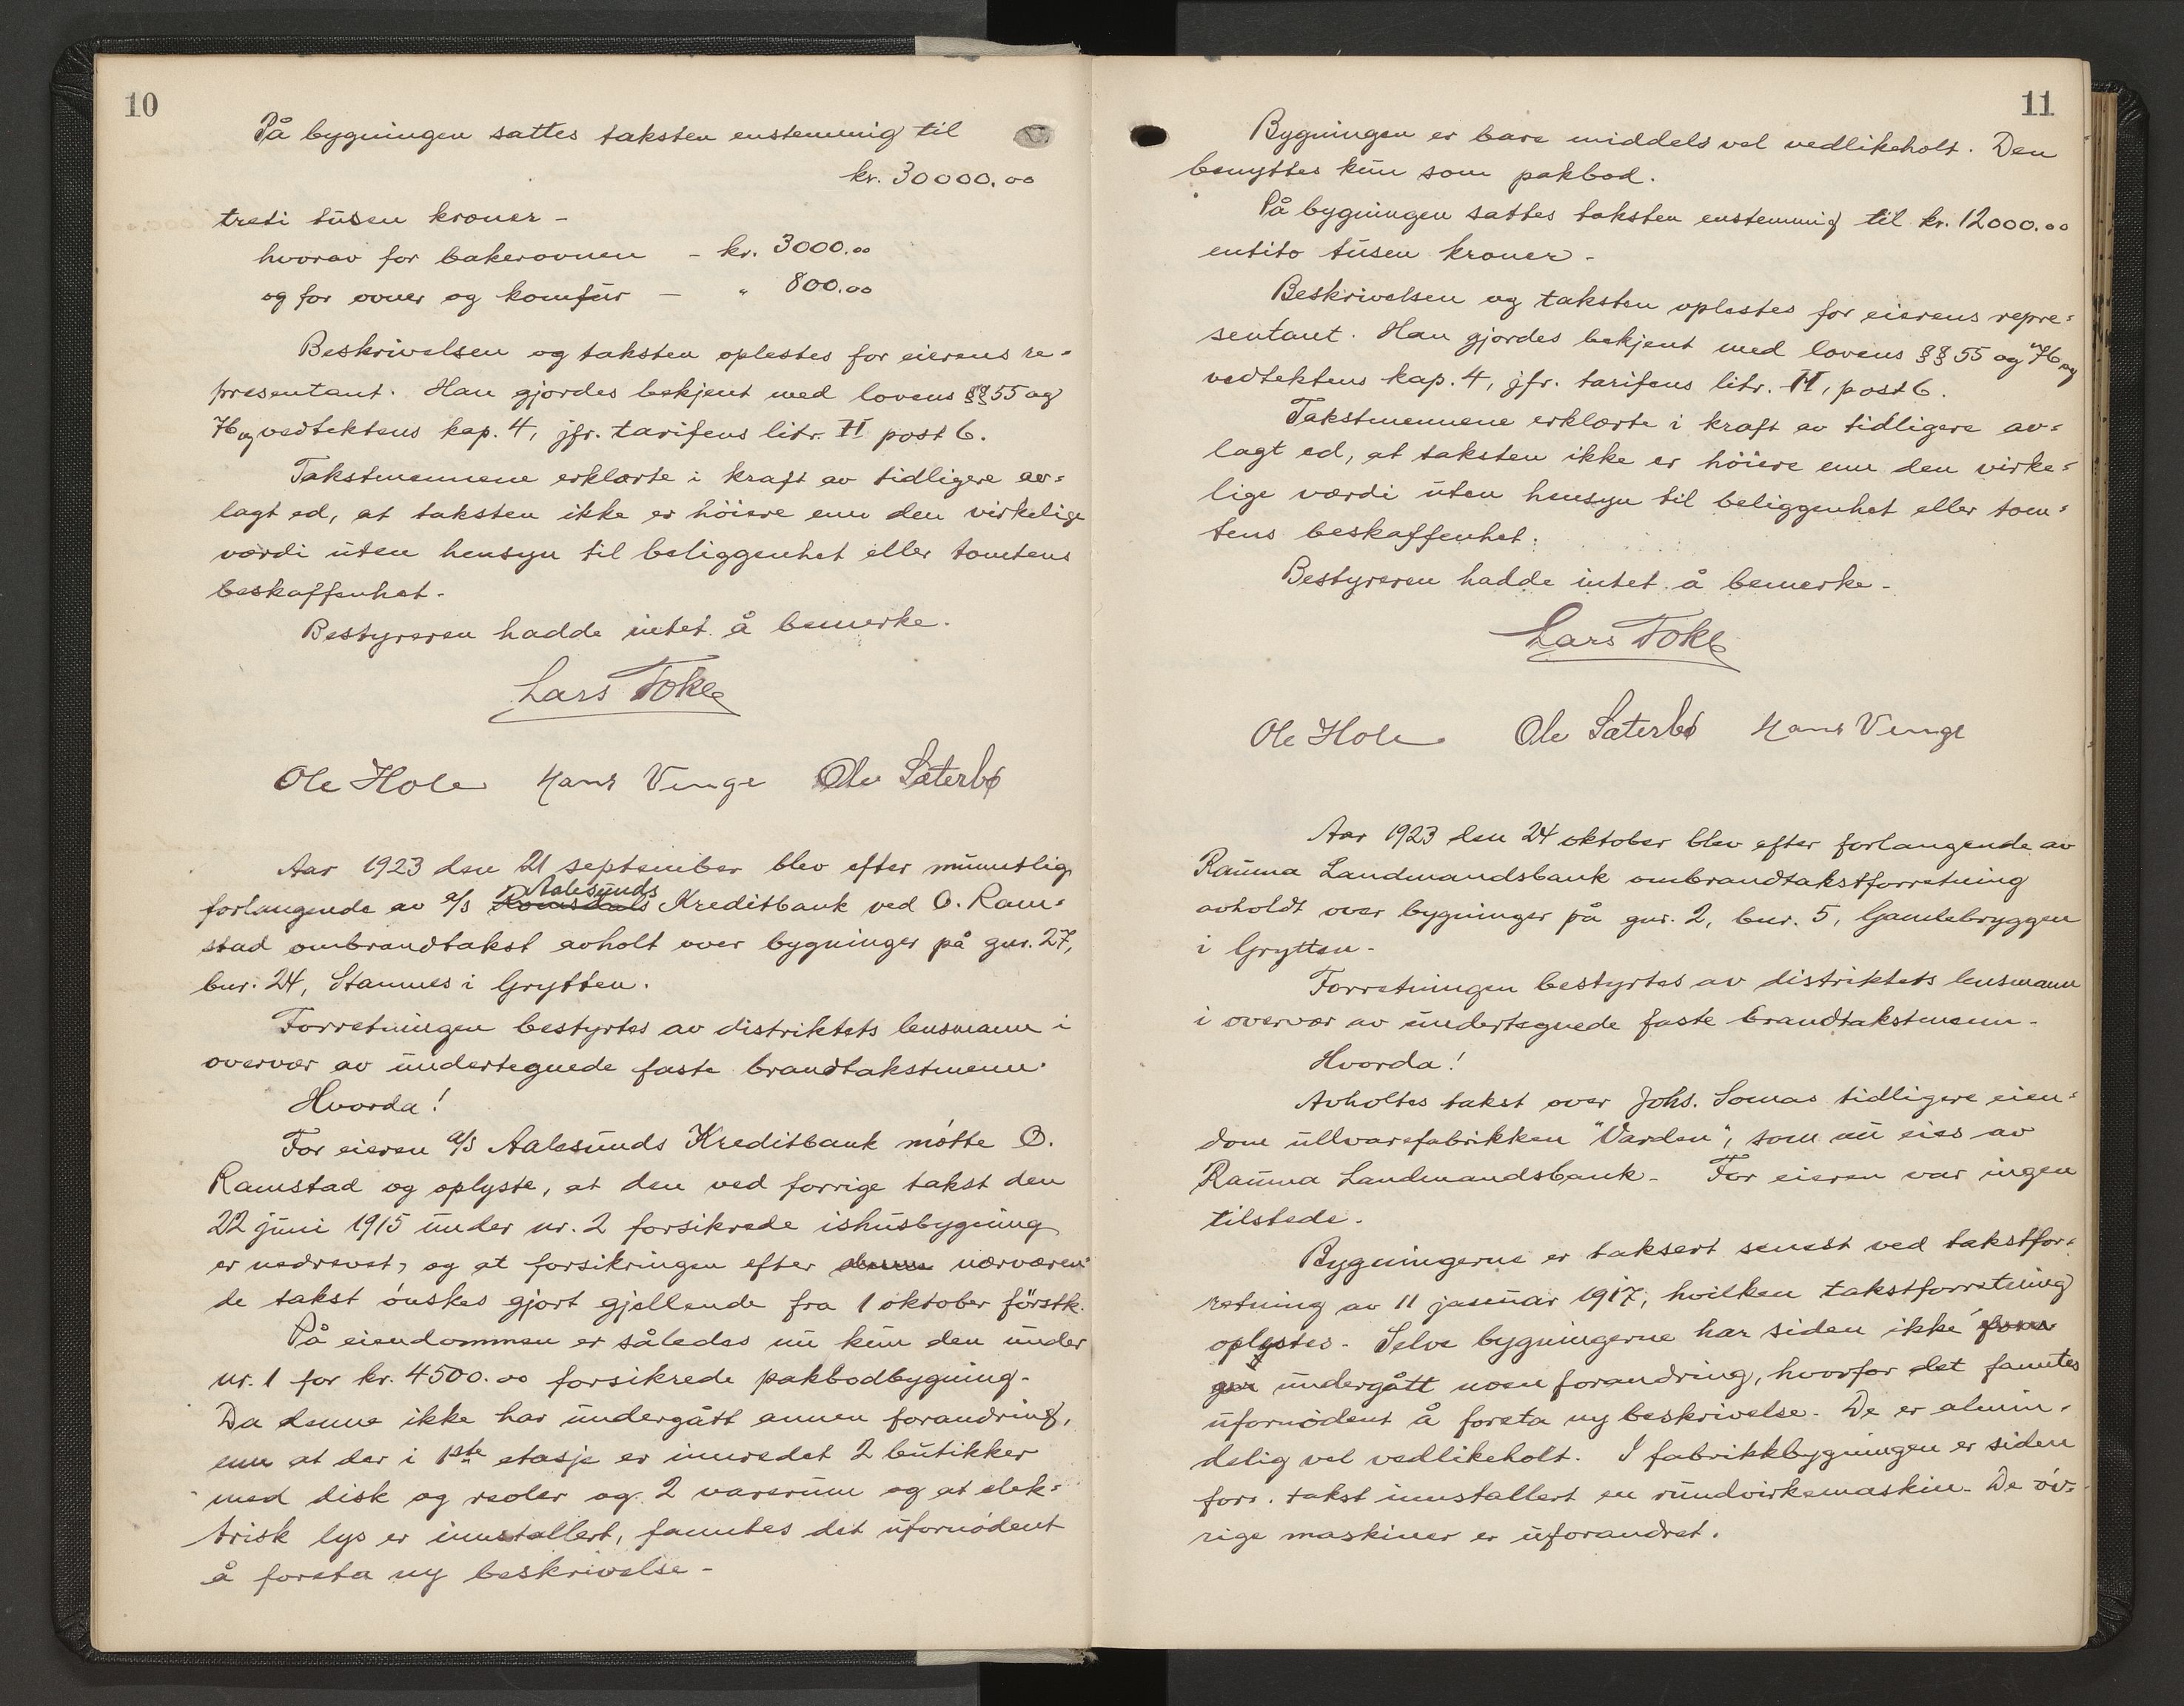 10
På bygningen sattes taksten enstemmig til
kr. 30000.00
treti tusen kroner -
hvorav for bakerovnen - kr. 3000.00
og for ovner og komfur - " 800.00
Beskrivelsen og taksten oplestes for eierens re-
presentant. Han gjordes bekjent med lovens §§ 55 og
76 og vedtektens kap. 4, jfr. tarifens litr. H post 6.
Takstmennene erklærte i kraft av tidligere av-
lagt ed, at taksten ikke er höiere enn den virkelige
værdi uten hensyn til beliggenhet eller tomtens
beskaffenhet.
Bestyreren hadde intet å bemerke.
Lars Tokle
Ole Hole Hans Venge Ole Sæterbø
Aar 1923 den 21 september blev efter muntlig
forlangende av a/s Romsdals Aalesunds Kreditbank ved O. Ram-
stad ombrandtakst avholt over bygninger på gnr. 27,
bnr. 24, Stamnes i Grytten.
Forretningen bestyrtes av distriktets lensmann i
overvær av undertegnede faste brandtakstmenn.
Hvorda!
For eieren a/s Aalesunds Kreditbank mötte O.
Ramstad og oplyste, at den ved forrige takst den
22 juni 1915 under nr. 2 forsikrede ishusbygning
er nedrevet, og at forsikringen efter denne nærværen-
de takst önskes gjort gjellende fra 1 oktober förstk.
På eiendommen er således nu kun den under
nr. 1 for kr. 4500.00 forsikrede pakbodbygning.
Da denne ikke har undergått annen forandring,
enn at der i 1ste etasje er innredet 2 butikker
med disk og reoler og 2 varerum og at elek-
trisk lys er innstallert, fanntes det ufornödent
å foreta ny beskrivelse -
11
Bygningen er bare middels vel vedlikeholt. Den
benyttes kun som pakbod.
På bygningen sattes taksten enstemmig til kr. 12000.00
entito tusen kroner -
Beskrivelsen og taksten oplestes for eierens repre-
sentant. Han gjordes bekjent med lovens §§ 55 og 76 og
vedtektens kap. 4, jfr. tarifens litr. H, post 6.
Takstmennene erklærte i kraft av tidligere av-
lagt ed, at taksten ikke er höiere enn den virke-
lige værdi uten hensyn til beliggenhet eller tom-
tens beskaffenhet.
Bestyreren hadde intet å bemerke -
Lars Tokle
Ole Hole Ole Sæterbø Hans Venge
Aar 1923 den 24 oktober blev efter forlangende av
Rauma Landmandsbank ombrandtakstforretning
avholdt over bygninger på gnr. 2, bnr. 5, Gamlebryggen
i Grytten -
Forretningen bestyrtes av distriktets lensmann
i overvær av undertegnede faste brandtakstmenn -
Hvorda!
Avholtes takst over Johs. Somas tidligere eien-
dom ullvarefabrikken "Varden", som nu eies av
Rauma Landmandsbank - For eieren var ingen
tilstede.
Bygningerne er taksert senest ved takstfor-
retning av 11 januar 1917, hvilken takstforretning
oplystes - Selve bygningerne har siden ikke
undergått noen forandring, hvorfor det fanntes
ufornödent å foreta ny beskrivelse - De er almin-
delig vel vedlikeholt. I fabrikkbygningen er siden
forr. takst innstallert en rundvirkemaskin - De öv-
rige maskiner er uforandret.